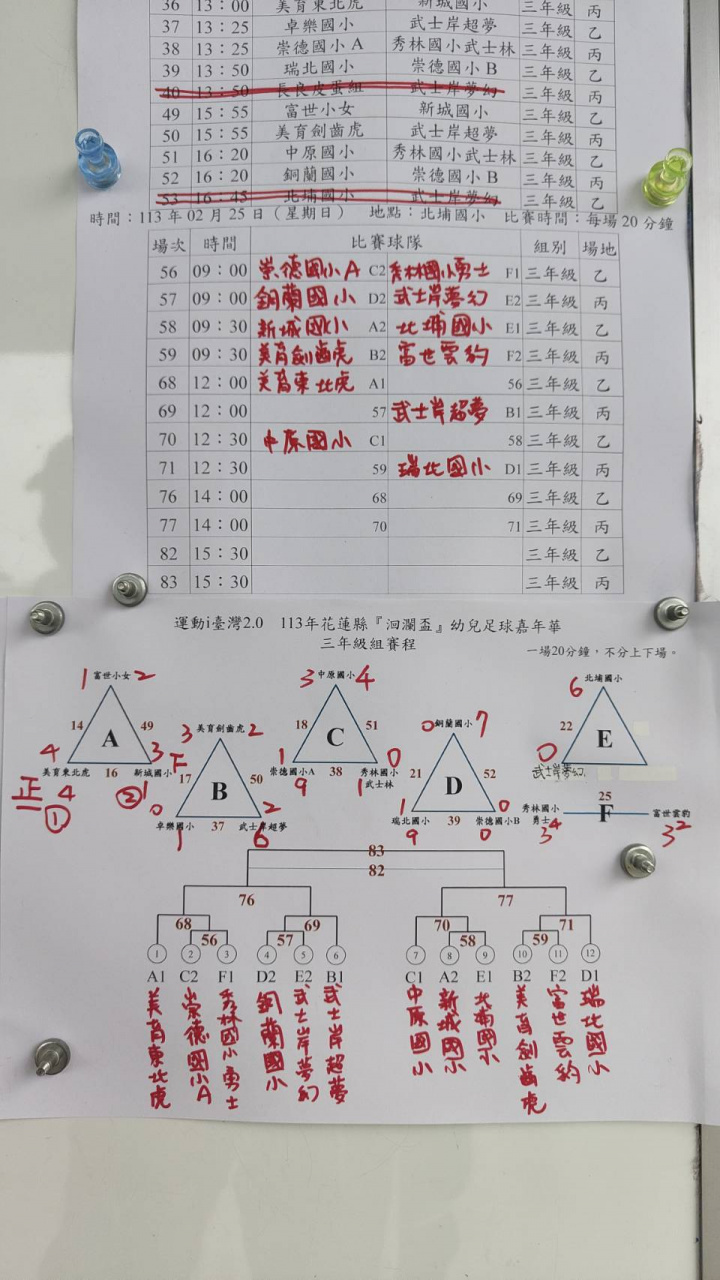 36 13：00 美育東北虎 新城國小 三年級 丙
37 13：25 卓樂國小 武士岸超夢 三年級 乙
38 13：25 崇德國小 A 秀林國小武士林 三年級 丙
39 13：50 瑞北國小 崇德國小 B 三年級 乙
40 13：50 長良皮蛋組 武士岸夢幻 三年級 丙
49 15：55 富世小女 新城國小 三年級 乙
50 15：55 美育劍齒虎 武士岸超夢 三年級 丙
51 16：20 中原國小 秀林國小武士林 三年級 乙
52 16：20 銅蘭國小 崇德國小 B 三年級 丙
53 16：45 北埔國小 武士岸夢幻 三年級 乙
時間：113 年 02 月 25 日（星期日） 地點：北埔國小 比賽時間：每場 20 分鐘
場次 時間 比賽球隊 組別 場地
56 09：00 崇德國小A C2 秀林國小勇士 F1 三年級 乙
57 09：00 銅蘭國小 D2 武士岸夢幻 E2 三年級 丙
58 09：30 新城國小 A2 北埔國小 E1 三年級 乙
59 09：30 美育劍齒虎 B2 富世雲豹 F2 三年級 丙
68 12：00 美育東北虎 A1 56 三年級 乙
69 12：00 57 武士岸超夢 B1 三年級 丙
70 12：30 中原國小 C1 58 三年級 乙
71 12：30 59 瑞北國小 D1 三年級 丙
76 14：00 68 69 三年級 乙
77 14：00 70 71 三年級 丙
82 15：30 三年級 乙
83 15：30 三年級 丙
運動i臺灣2.0 113年花蓮縣『洄瀾盃』幼兒足球嘉年華
三年級組賽程
一場20分鐘，不分上下場。
1 富世小女 2
14 A 49
4 3
美育東北虎 16 新城國小
正 4 ① ② 1
3 美育劍齒虎 2
17 B 50
0 2
卓樂國小 37 武士岸超夢
1 6
3 中原國小 4
18 C 51
1 0
崇德國小A 38 秀林國小武士林
9 1
0 銅蘭國小 7
21 D 52
1 0
瑞北國小 39 崇德國小B
9 0
6 北埔國小
22 E
0
武士岸夢幻
秀林國小勇士 25 F 富世雲豹
3 4 3 2
83
82
76 77
68 69 70 71
56 57 58 59
1 2 3 4 5 6 7 8 9 10 11 12
A1 C2 F1 D2 E2 B1 C1 A2 E1 B2 F2 D1
美育東北虎
崇德國小A
秀林國小勇士
銅蘭國小
武士岸夢幻
武士岸超夢
中原國小
新城國小
北埔國小
美育劍齒虎
富世雲豹
瑞北國小